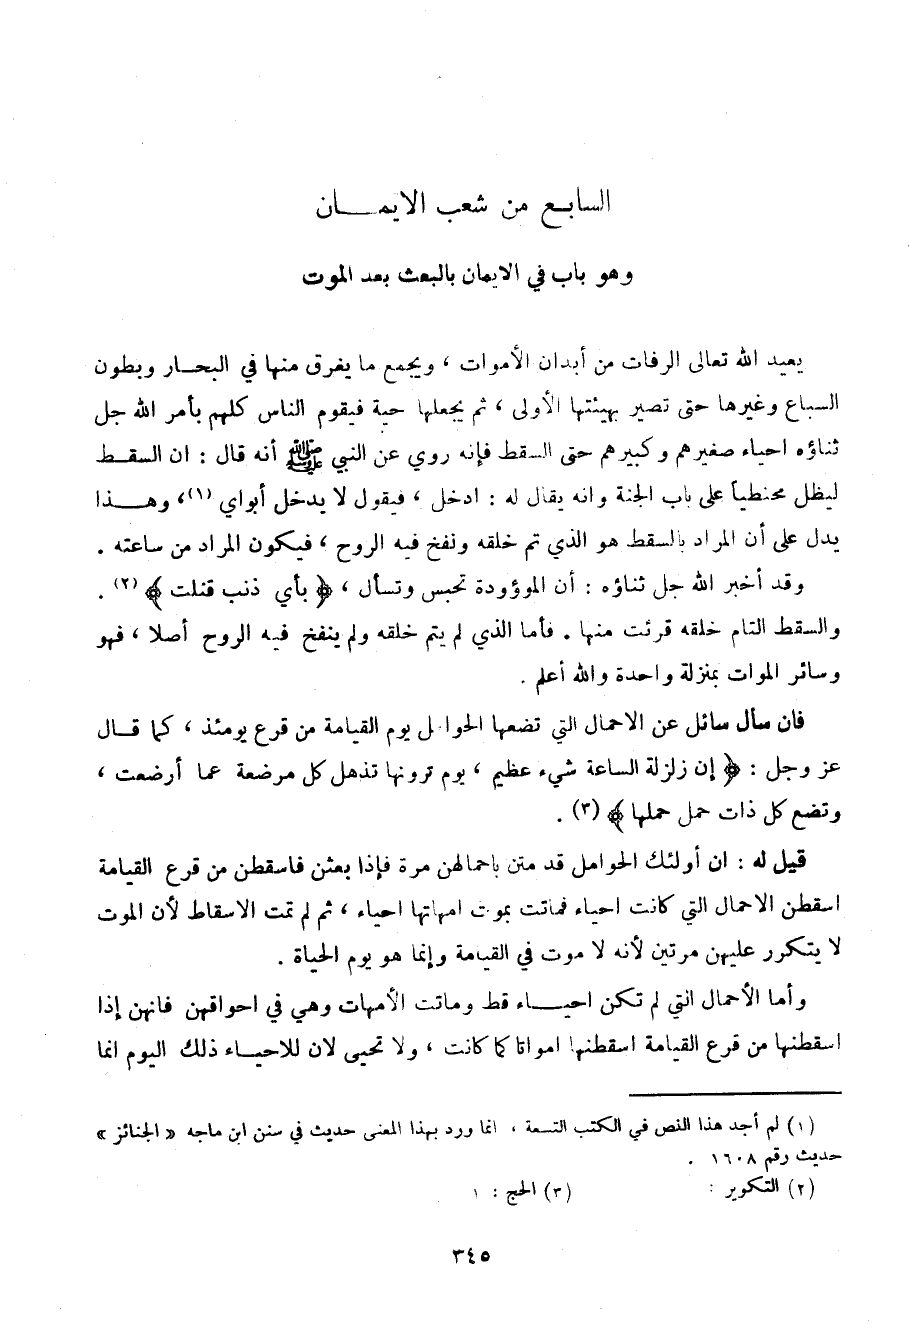 السابع من شعب الايمان
وهو باب في الايمان بالبعث بعد الموت
يعيد الله تعالى الرفات من أبدان الأموات ، ويجمع ما يفرق منها في البحار وبطون
السباع وغيرها حتى تصير بهيئتها الأولى ، ثم يجعلها حية فيقوم الناس كلهم بأمر الله جل
ثناؤه احياء صغيرهم وكبيرهم حتى السقط فإنه روي عن النبي ﷺ أنه قال : ان السقط
ليظل محنطياً على باب الجنة وانه يقال له : ادخل ، فيقول لا يدخل أبواي (١)، وهذا
يدل على أن المراد بالسقط هو الذي تم خلقه ونفخ فيه الروح ، فيكون المراد من ساعته .
وقد أخبر الله جل ثناؤه : أن الموؤودة تحبس وتسأل ، ﴿ بأي ذنب قتلت ﴾ (٢) .
والسقط التام خلقه قرئت منها . فأما الذي لم يتم خلقه ولم ينفخ فيه الروح أصلا ، فهو
وسائر الموات بمنزلة واحدة والله أعلم .
فان سأل سائل عن الاحمال التي تضعها الحوامل يوم القيامة من قرع يومئذ ، كما قال
عز وجل : ﴿ إن زلزلة الساعة شيء عظيم ، يوم ترونها تذهل كل مرضعة عما أرضعت ،
وتضع كل ذات حمل حملها ﴾ (٣) .
قيل له : ان أولئك الحوامل قد متن باحمالهن مرة فإذا بعثن فاسقطن من قرع القيامة
اسقطن الاحمال التي كانت احياء فماتت بموت امهاتها احياء ، ثم لم تمت الاسقاط لأن الموت
لا يتكرر عليهن مرتين لأنه لا موت في القيامة وإنما هو يوم الحياة .
وأما الأحمال التي لم تكن احياء قط وماتت الأمهات وهي في احواقهن فانهن إذا
اسقطنها من قرع القيامة اسقطنها امواتا كما كانت ، ولا تحيى لان للاحياء ذلك اليوم انما
(١) لم أجد هذا النص في الكتب التسعة ، انما ورد بهذا المعنى حديث في سنن ابن ماجه « الجنائز »
حديث رقم ١٦٠٨ .
(٢) التكوير : (٣) الحج : ١
٣٤٥